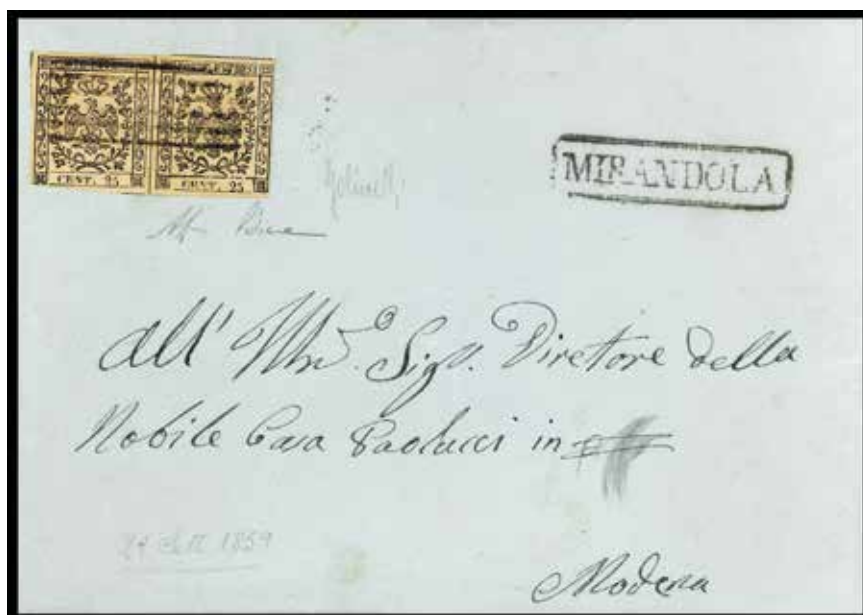 CENT. 25 CENT. 25
MIRANDOLA
all' Sigr. Diretore della
Nobile Casa Paolucci in
1859
Modena